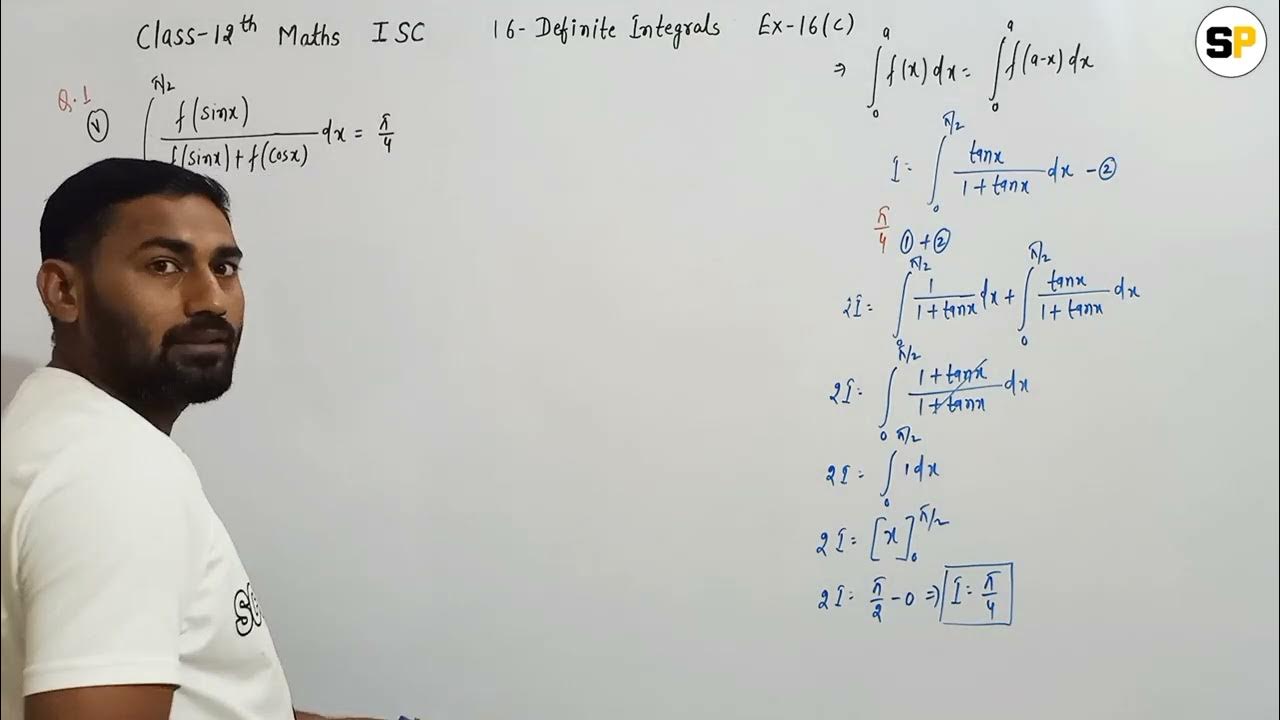 Class-12th Maths ISC 16-Definite Integrals Ex-16(C)
SP
Q.1
(v) ∫ π/2 f(sinx) / f(sinx) + f(cosx) dx = π/4
⇒ ∫₀ᵃ f(x) dx = ∫₀ᵃ f(a-x) dx
I = ∫₀^π/2 tanx / 1 + tanx dx - ②
π/4 ① + ②
2I = ∫₀^π/2 1 / 1 + tanx dx + ∫₀^π/2 tanx / 1 + tanx dx
2I = ∫₀^π/2 1 + tanx / 1 + tanx dx
2I = ∫₀^π/2 1 dx
2I = [x]₀^π/2
2I = π/2 - 0 ⇒ I = π/4